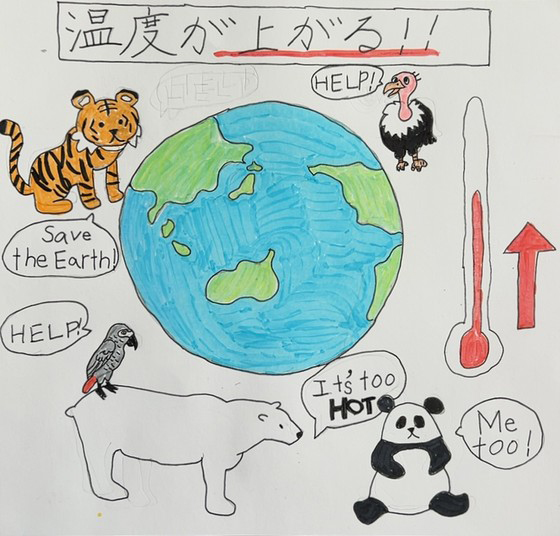 温度が上がる!!
HELP!
HELP!
Save
the Earth!
HELP!
It's too
HOT
Me
too!